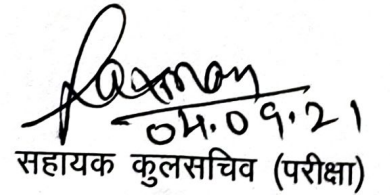 04.09.21
सहायक कुलसचिव (परीक्षा)